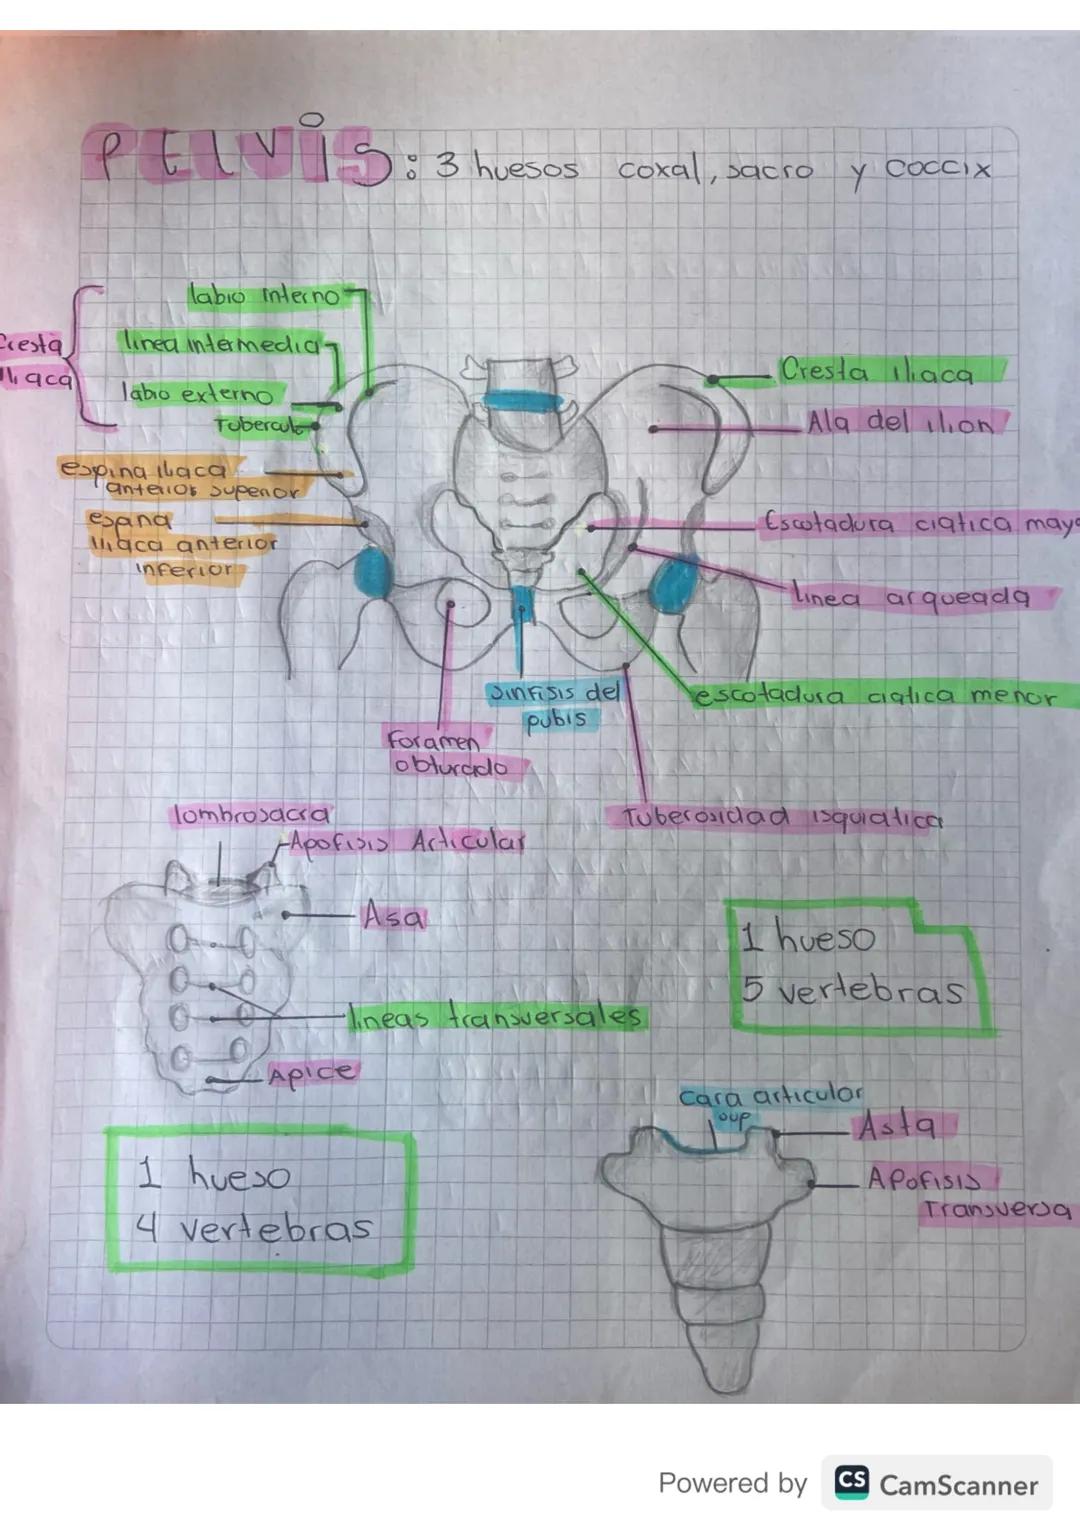 PELVIS: 3 huesos coxal, sacro y coccix
labio interno
linea intermedia
Cresta
iliaca
labio externo
Tubercul
espina iliaca
anterior superior
espana
iliaca anterior
inferior
Cresta iliaca
Ala del ilion
Escotadura ciatica mayo
linea arqueada
escotadura ciatica menor
sinfisis del
pubis
Foramen
obturado
Tuberosidad isquiatica
lombrosacra
Apofisis Articular
Asa
lineas transversales
Apice
1 hueso
5 vertebras
1 hueso
4 vertebras
cara articular
sup
Asta
Apofisis
Transversa
Powered by CS CamScanner